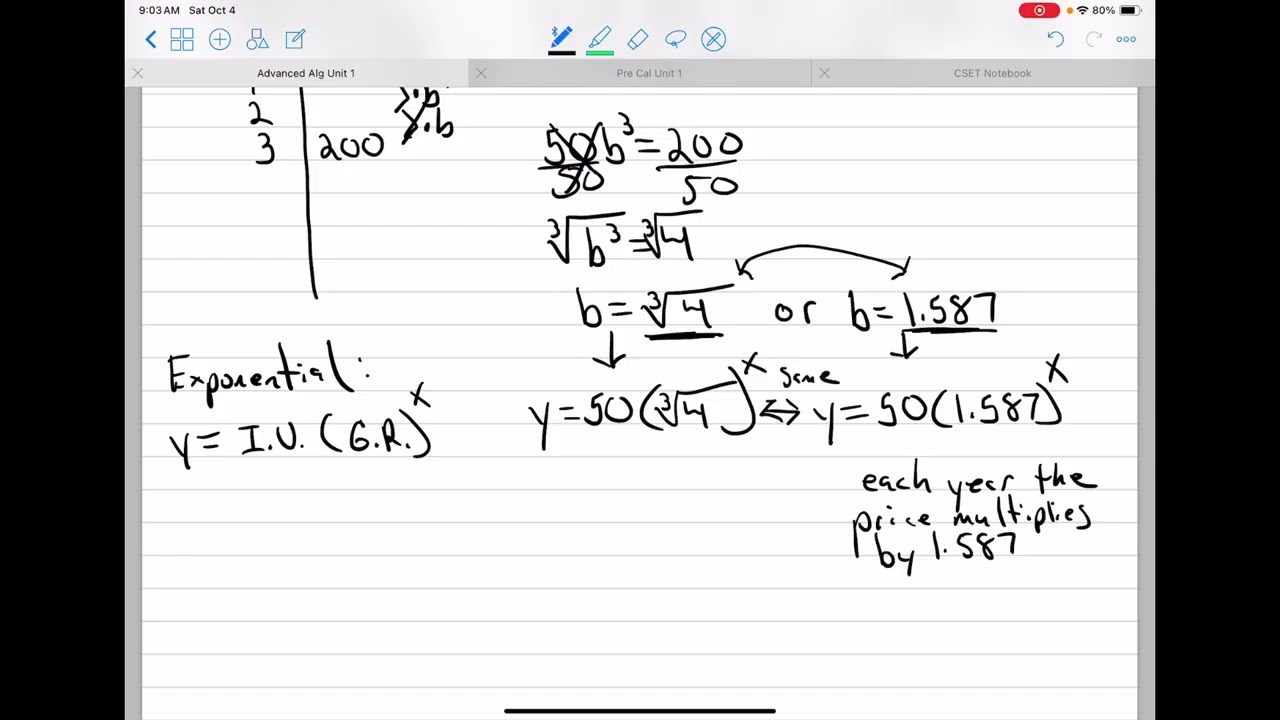 9:03 AM Sat Oct 4
80%
Advanced Alg Unit 1
Pre Cal Unit 1
CSET Notebook
2 ·b
3 200 ·b
50b³ = 200
50 50
∛b³ = ∛4
b = ∛4 or b = 1.587
Exponential:
y = I.V. (G.R.)^x
y = 50(∛4)^x ↔ same y = 50(1.587)^x
each year the
price multiplies
by 1.587